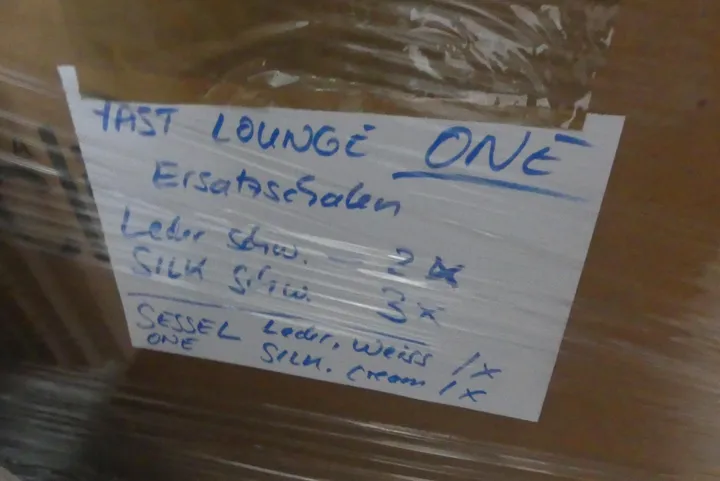 FAST LOUNGE ONE
Ersatzschalen
Leder schw. - 2x
SILK schw. 3x
SESSEL Leder. weiss 1x
ONE SILK. cream 1x